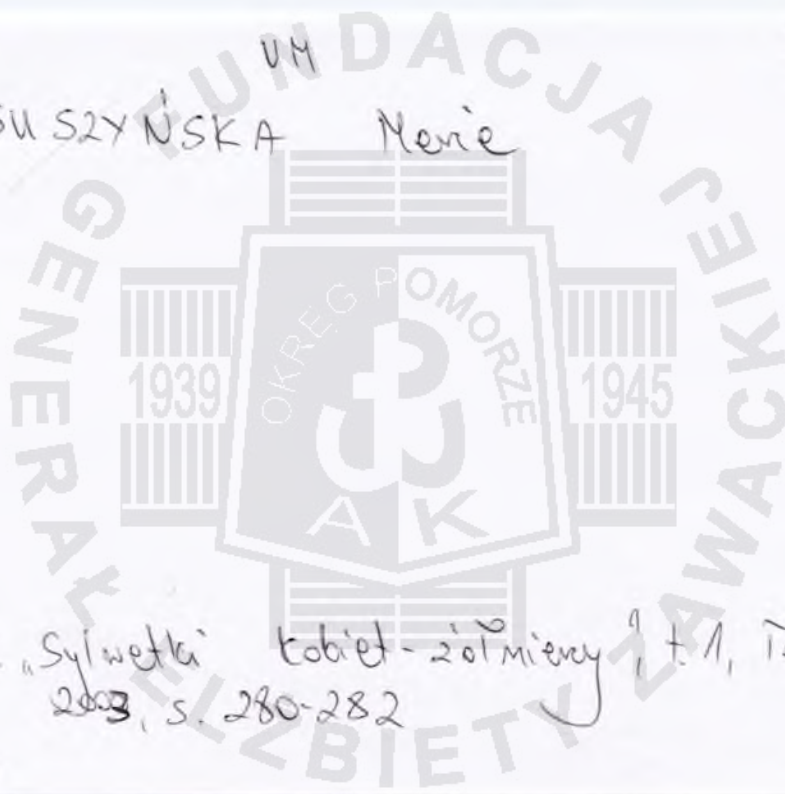 VM
SUSZYŃSKA Maria
FUNDACJA GENERAŁ ELŻBIETY ZAWACKIEJ
OKRĘG POMORZE
1939 1945
AK
"Sylwetki kobiet-żołnierzy", t. 1,
2003, s. 280-282